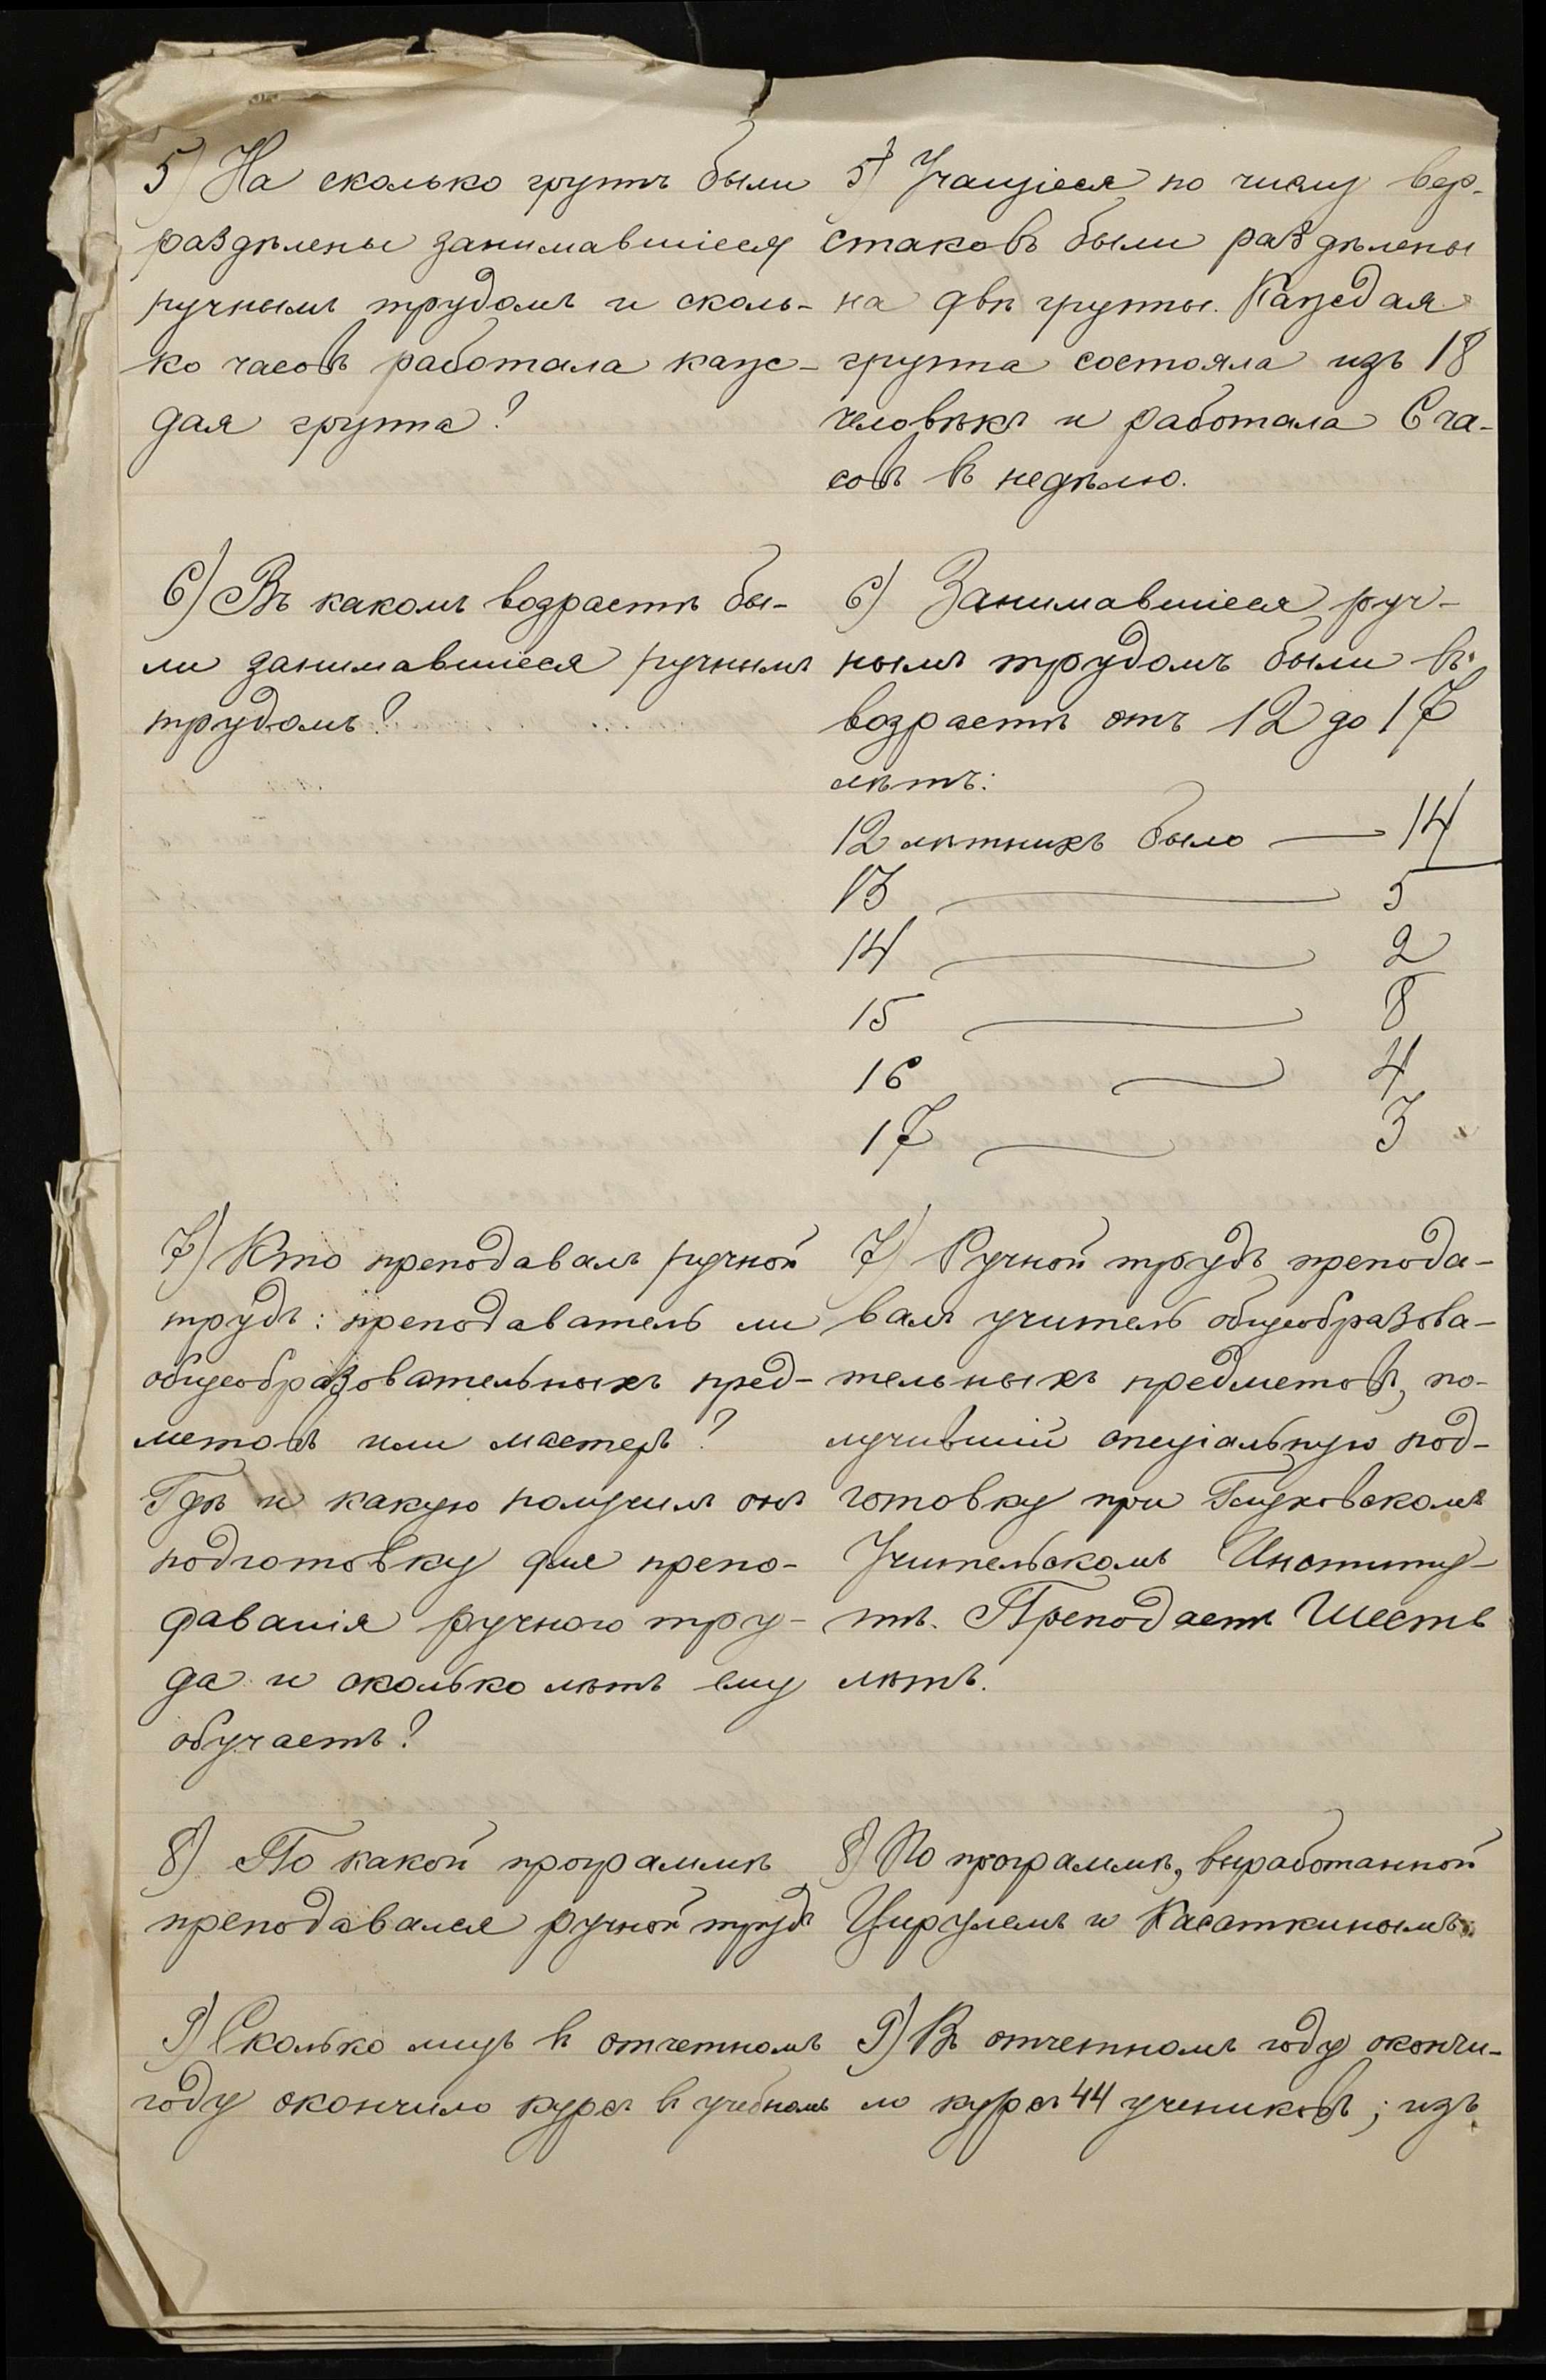 5) На сколько группъ были
раздѣлены занимавшіеся
ручнымъ трудомъ и сколь-
ко часовъ работала каж-
дая группа?
5) Учащіеся по числу вер-
стаковъ были раздѣлены
на двѣ группы. Каждая
группа состояла изъ 18
человѣкъ и работала 6 ча-
совъ въ недѣлю.
6) Въ какомъ возрастѣ бы-
ли занимавшіеся ручнымъ
трудомъ?
6) Занимавшіеся руч-
нымъ трудомъ были въ
возрастѣ отъ 12 до 17
лѣтъ:
12 лѣтнихъ было — 14
13 — 5
14 — 2
15 — 8
16 — 4
17 — 3
7) Кто преподавалъ ручной
трудъ: преподаватель ли
общеобразовательныхъ пред-
метовъ или мастеръ?
Гдѣ и какую получилъ онъ
подготовку для препо-
даванія ручного тру-
да и сколько лѣтъ ему
обучаетъ?
7) Ручной трудъ препода-
валъ учитель общеобразова-
тельныхъ предметовъ, по-
лучившій спеціальную под-
готовку при Глуховскомъ
Учительскомъ Институ-
тѣ. Преподаетъ шесть
лѣтъ.
8) По какой программѣ
преподавался ручной трудъ
8) По программѣ, выработанной
Цирулемъ и Касаткинымъ.
9) Сколько лицъ въ отчетномъ
году окончило курсъ въ учебномъ
9) Въ отчетномъ году окончи-
ло курсъ 44 учениковъ; изъ